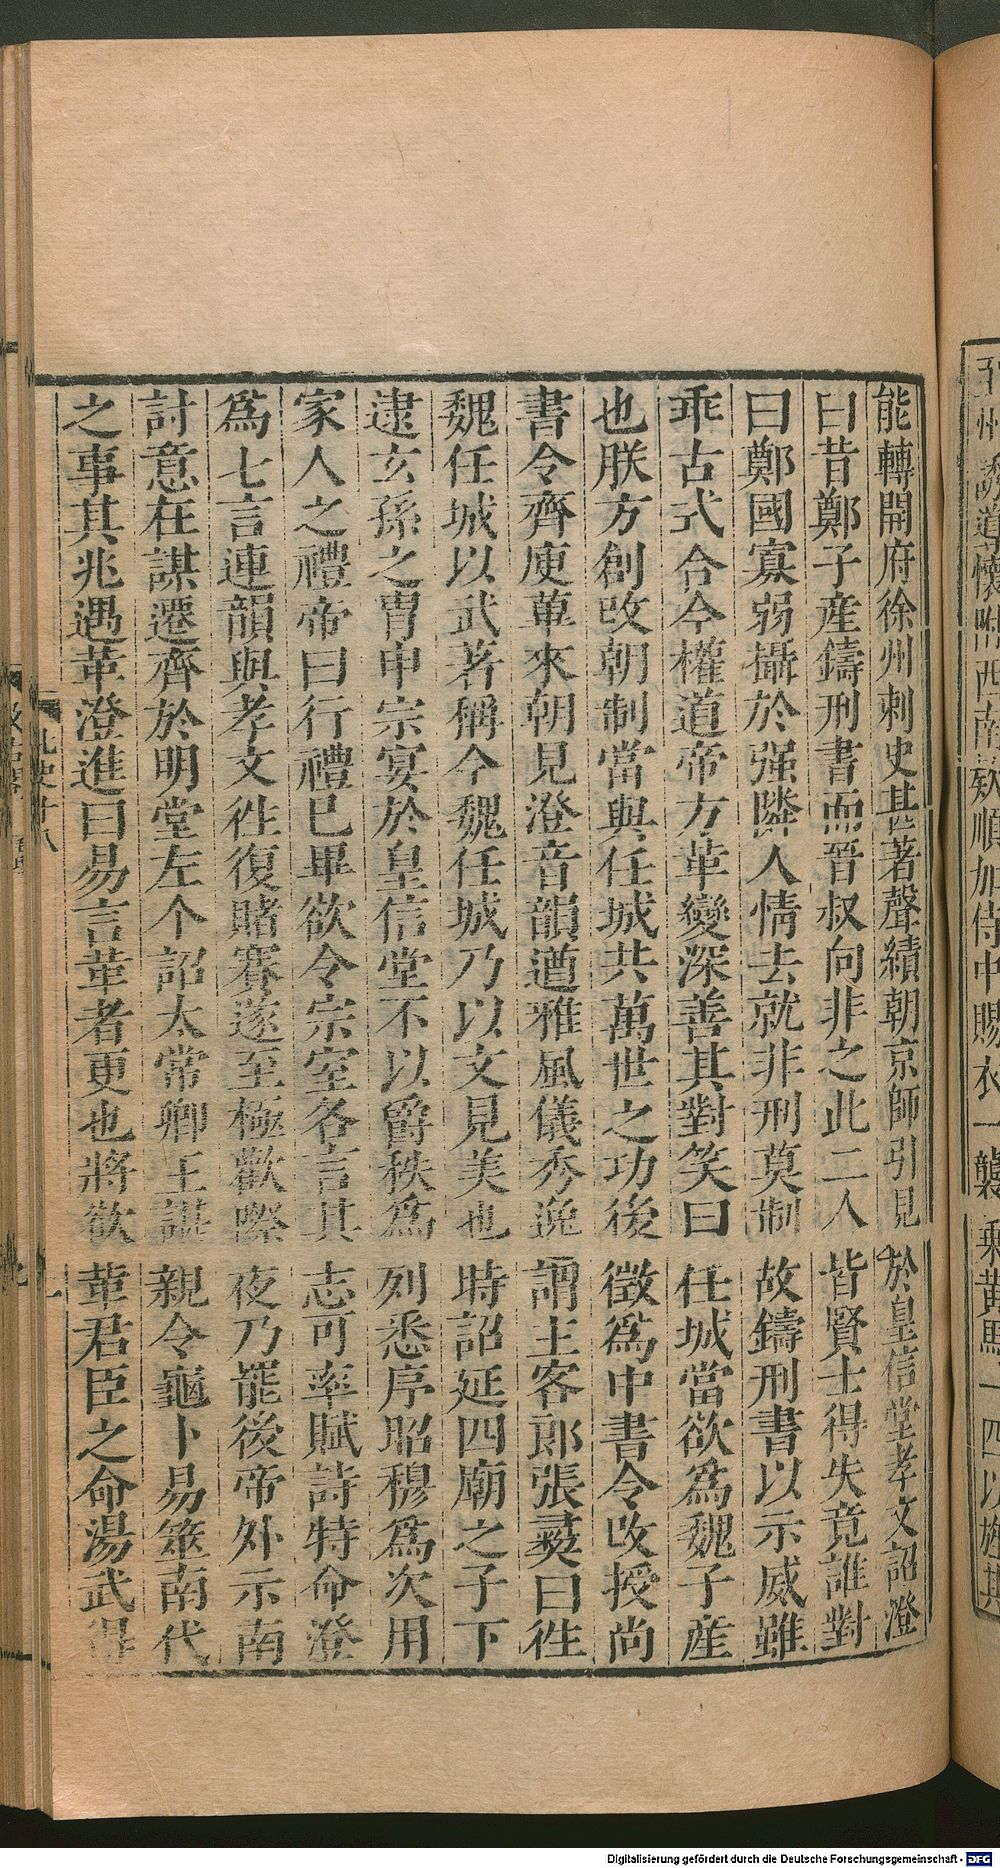 能轉開府徐州刺史甚著聲績朝京師引見於皇信堂孝文詔澄
曰昔鄭子產鑄刑書而晉叔向非之此二人皆賢士得失竟誰對
曰鄭國寡弱攝於强隣人情去就非刑莫制故鑄刑書以示威雖
乖古式合今權道帝方革變深善其對笑曰任城當欲爲魏子產
也朕方創改朝制當與任城共萬世之功後徵爲中書令改授尚
書令齊庾蓽來朝見澄音韻遒雅風儀秀逸謂主客郎張彛曰徃
魏任城以武著稱今魏任城乃以文見美也時詔延四廟之子下
逮玄孫之胄申宗宴於皇信堂不以爵秩爲列悉序昭穆爲次用
家人之禮帝曰行禮巳畢欲令宗室各言其志可率賦詩特命澄
爲七言連韻與孝文徃復賭賽遂至極歡際夜乃罷後帝外示南
討意在謀遷齊於明堂左个詔太常卿王諶親令龜卜易筮南代
之事其兆遇革澄進曰易言革者更也將欲革君臣之命湯武得
誘道懷附西南欵順加侍中賜衣一襲乘黃馬一四以旌其
Digitalisierung gefördert durch die Deutsche Forschungsgemeinschaft - DFG